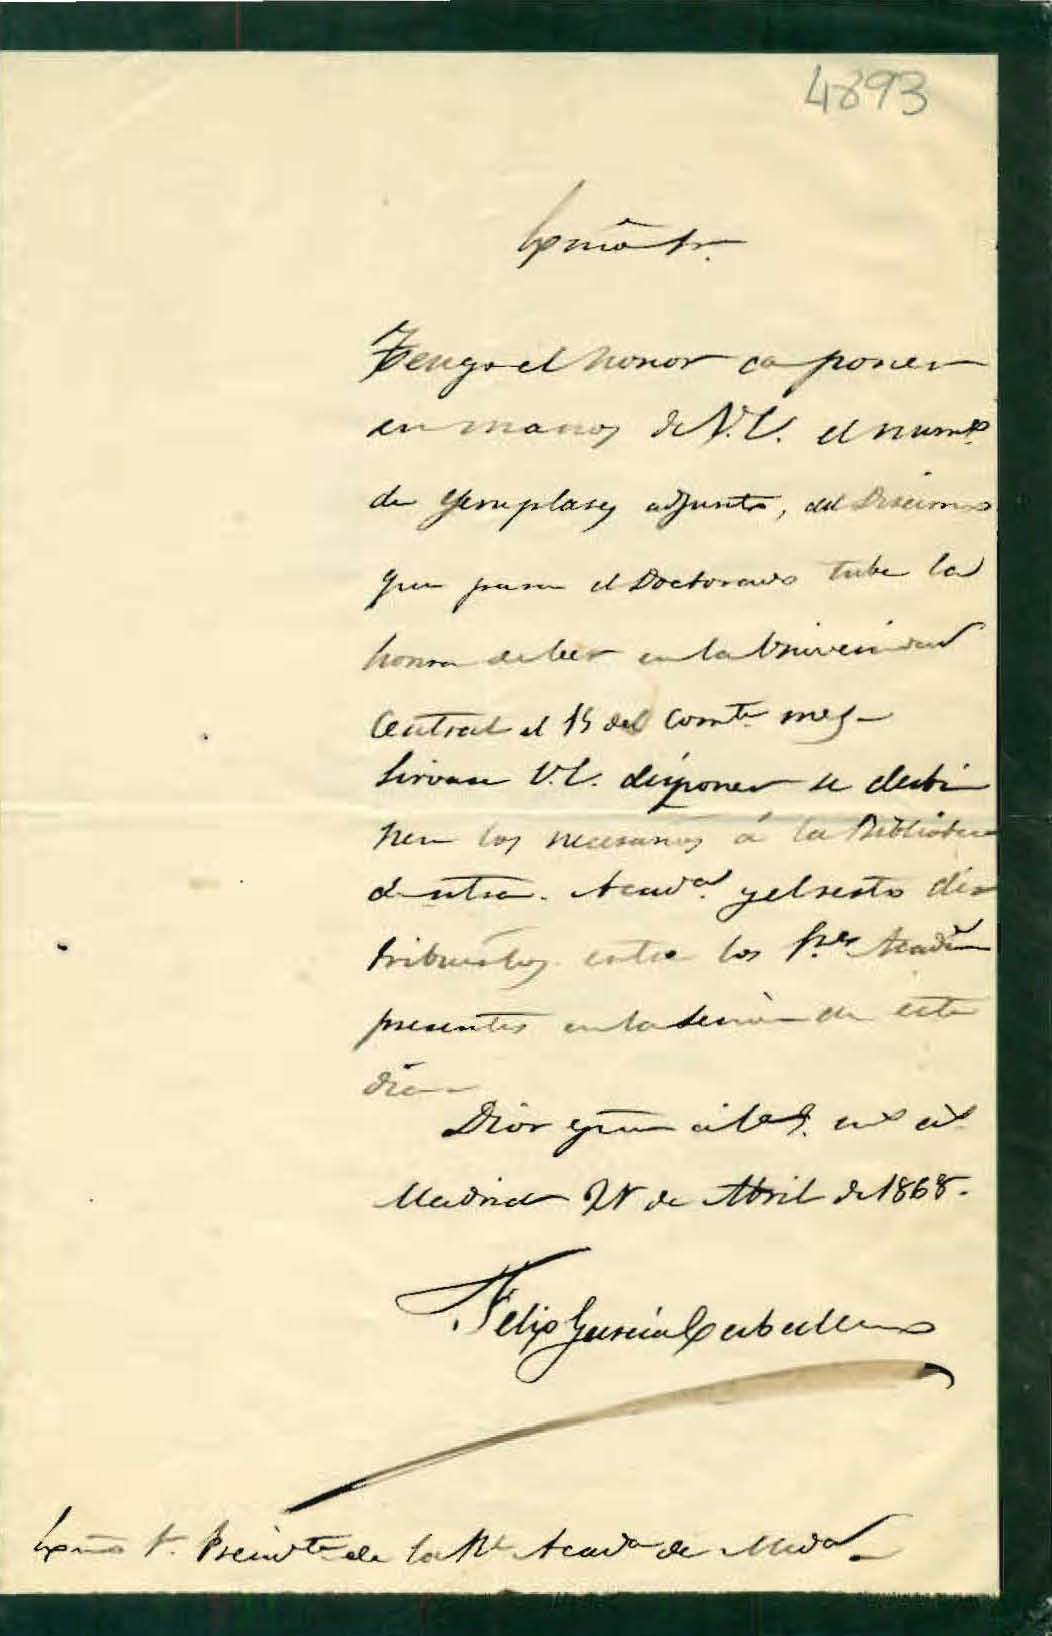 4893
Exmo Sr.
Tengo el honor de poner
en manos de V.E. el numo
de ejemplares adjunto, del Discurso
que para el Doctorado tube la
honra de leer en la Universidad
Central el 15 del corrte mes
Sirvase V.E. disponer se desti
nen los necesarios á la Biblioteca
de ntra. Acada. y el resto dis
tribuirlos entre los Sres Acadm
presentes en la sesion de este
dia
Dios gue á V.E. ms as
Madrid de Abril de 1868.
Felix Garcia Caballero
Exmo Sr. Presidte de la Rl Acada de Meda